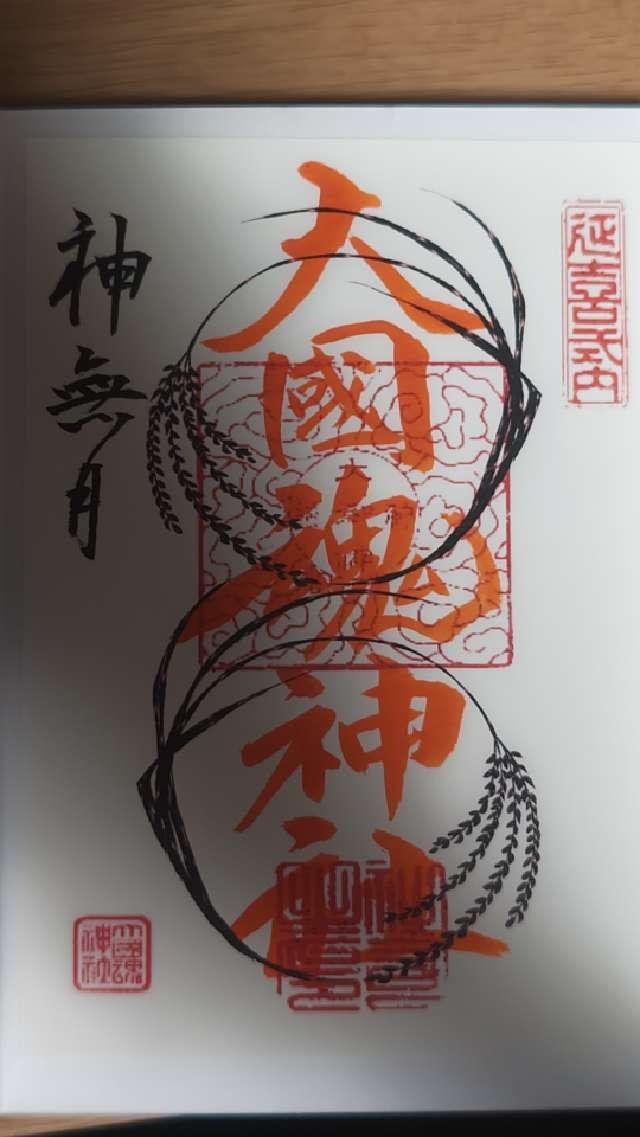 延喜式内
大國魂神社
神無月
大國魂神社